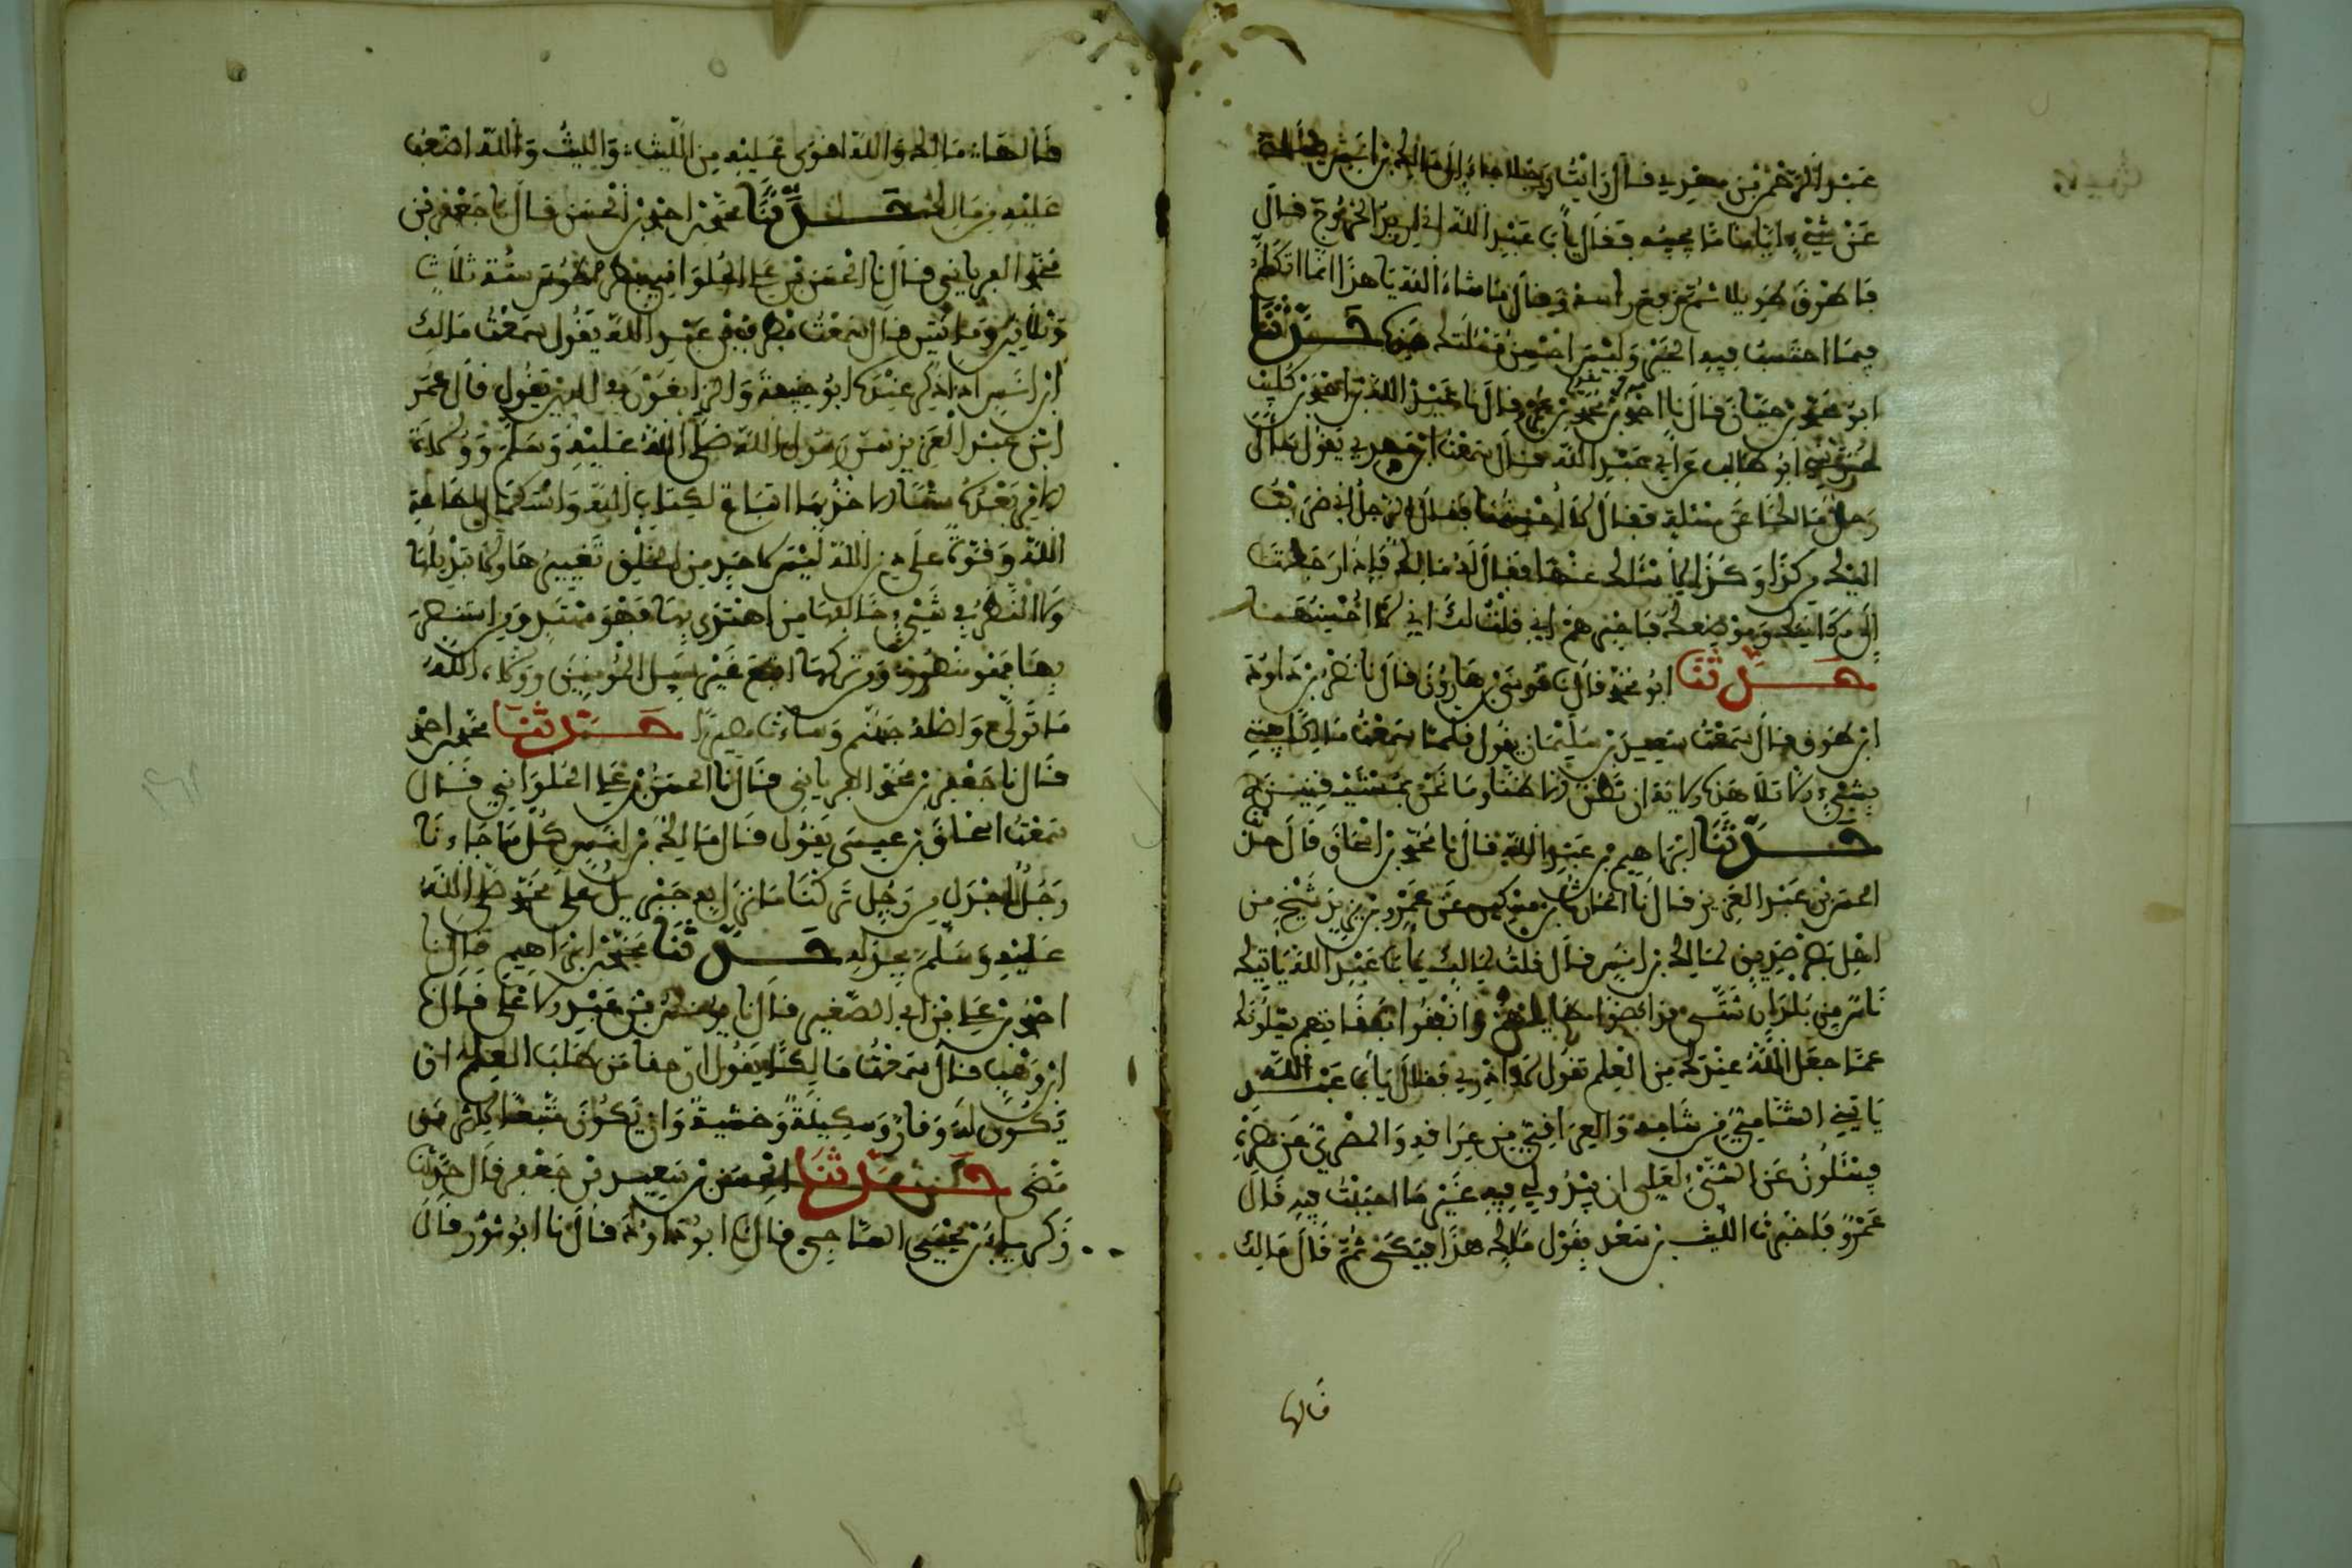 عبد الرحمن بن مهدي قال رايت رجلا جاء الى مالك بن انس يساله
عن شيء اياما ما يجيبه فقال يا با عبد الله اني اريد الخروج قال
فاطرق طويلا ثم رفع راسه وقال ما شاء الله يا هذا انما اتكلم
فيما احتسب فيه الخير وليس احسن مسئلتك هذه حدثنا
ابو محمد بن حيان قال نا احمد بن محمد بن قال نا عبيد الله بن احمد بن كليب
ابو طالب عن ابي عبد الله قال سمعت ابن مهدي يقول سال
رجل مالكا عن مسئلة فقال لا احسنها فقال الرجل اني ضربت
اليك من كذا وكذا لاسئلك عنها فقال له مالك فاذا رجعت
الى مكانك وموضعك فاخبرهم اني قلت لك اني لا احسنها
حدثنا ابو محمد قال نا موسى بن هارون قال نا نصر بن داود
ابن طوق قال سمعت سعيد بن سليمان يقول فلما سمعت مالكا يفتي
بشيء الا تلا هذه الاية ان نظن الا ظنا وما نحن بمستيقنين
حدثنا ابراهيم بن عبد الله قال نا محمد بن اسحاق قال حدثنا
الحسن بن عبد العزيز قال نا الحارث بن مسكين عن عمرو بن يزيد شيخ من
اهل مصر صديق لمالك بن انس قال قلت لمالك يا با عبد الله ياتيك
ناس من بلدان شتى قد انضوا مطاياهم وانفقوا نفقاتهم يسئلونك
عما جعل الله عندك من العلم تقول لا ادري فقال يا با عبد الله
ياتيني الشامي من شامه والعراقي من عراقه والمصري من مصره
فيسئلوني عن الشيء لعلي ان يبدو لي فيه غير ما اجبت فيه قال
عمرو فاخبرت الليث بن سعد بقول مالك هذا فبكى ثم قال مالك
قالها
قالها مالك والله اقوى عليه من الليث والليث والله اضعف
عليه من مالك حدثنا محمد بن احمد بن الحسن قال نا جعفر بن
محمد الفريابي قال نا الحسن بن علي الحلواني بطرسوس سنة ثلاث
وثلاثين ومائتين قال سمعت مطرف بن عبد الله يقول سمعت مالك
ابن انس اذا ذكر عنده ابو حنيفة والزائغون في الدين يقول قال عمر
ابن عبد العزيز سن رسول الله صلى الله عليه وسلم وولاة
الامر بعده سننا الاخذ بها اتباع لكتاب الله واستكمال لطاعة
الله وقوة على دين الله ليس لاحد من الخلق تغييرها ولا تبديلها
ولا النظر في شيء خالفها من اهتدى بها فهو مهتد ومن استنصر
بها فهو منصور ومن تركها اتبع غير سبيل المؤمنين وولاه الله
ما تولى واصلاه جهنم وساءت مصيرا حدثنا محمد بن احمد
قال نا جعفر بن محمد الفريابي قال نا الحسن بن علي الحلواني قال
سمعت اسحاق بن عيسى يقول قال مالك بن انس كل ما جاءنا
رجل اجدل من رجل تركنا ما نزل به جبريل على محمد صلى الله
عليه وسلم بجدله حدثنا محمد بن ابراهيم قال نا
احمد بن علي بن ابي الصغير قال نا يونس بن عبد الاعلى قال نا
ابن وهب قال سمعت مالكا يقول ان حقا من طلب العلم ان
يكون له وقار وسكينة وخشية وان يكون متبعا لاثر من
مضى حدثنا الحسن بن سعيد بن جعفر قال حدثنا
زكرياء بن يحيى الساجي قال نا ابو داود قال نا ابو ثور قال